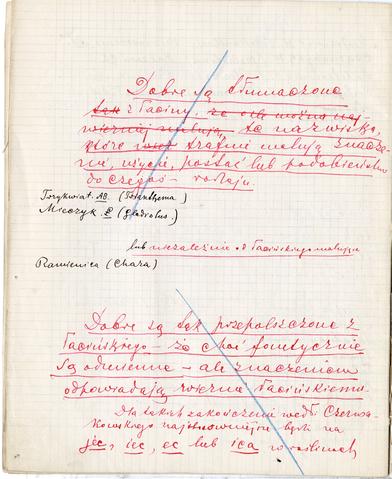 Dobre są tłumaczone
tak z łaciny, że ile można naj-
wierniej malują, te nazwiska,
które trafnie malują znacze-
nie, użycie, postać lub podobieństwo
do czegoś rodzaju.
Torzykwiat. AB. (
Mieczyk. E (gladiolus.)
lub niezależnie od łacińskiego malujące
Ramienica (Chara)
Dobre są tak przepolszczone z
łacińskiego – że choć fonetycznie
są odmienne – ale znaczeniem
odpowiadają wiernie łacińskiemu
Dla takich zakończenie wedł. Czerwia-
kowskiego najstosowniejsze byłoby na
jec, iec, ec lub ica w roślinach